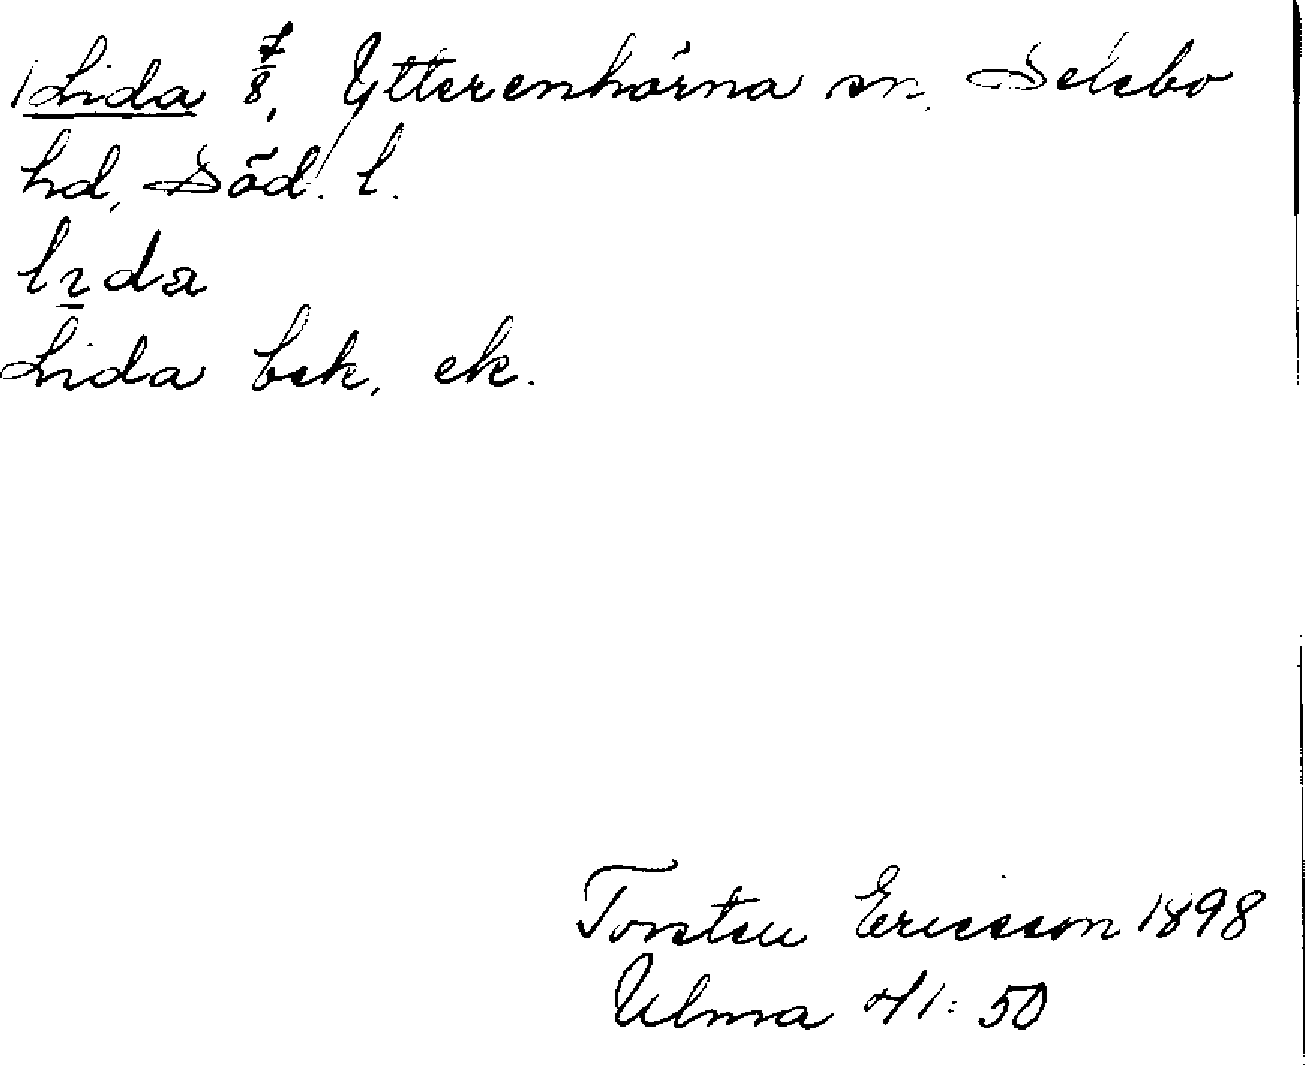 Lida 7/8, Ytterenhörna sn, Selebo
hd, Söd. l.
lɩda
Lida bek, ek.
Torsten Ericsson 1898
Ulma 41:50